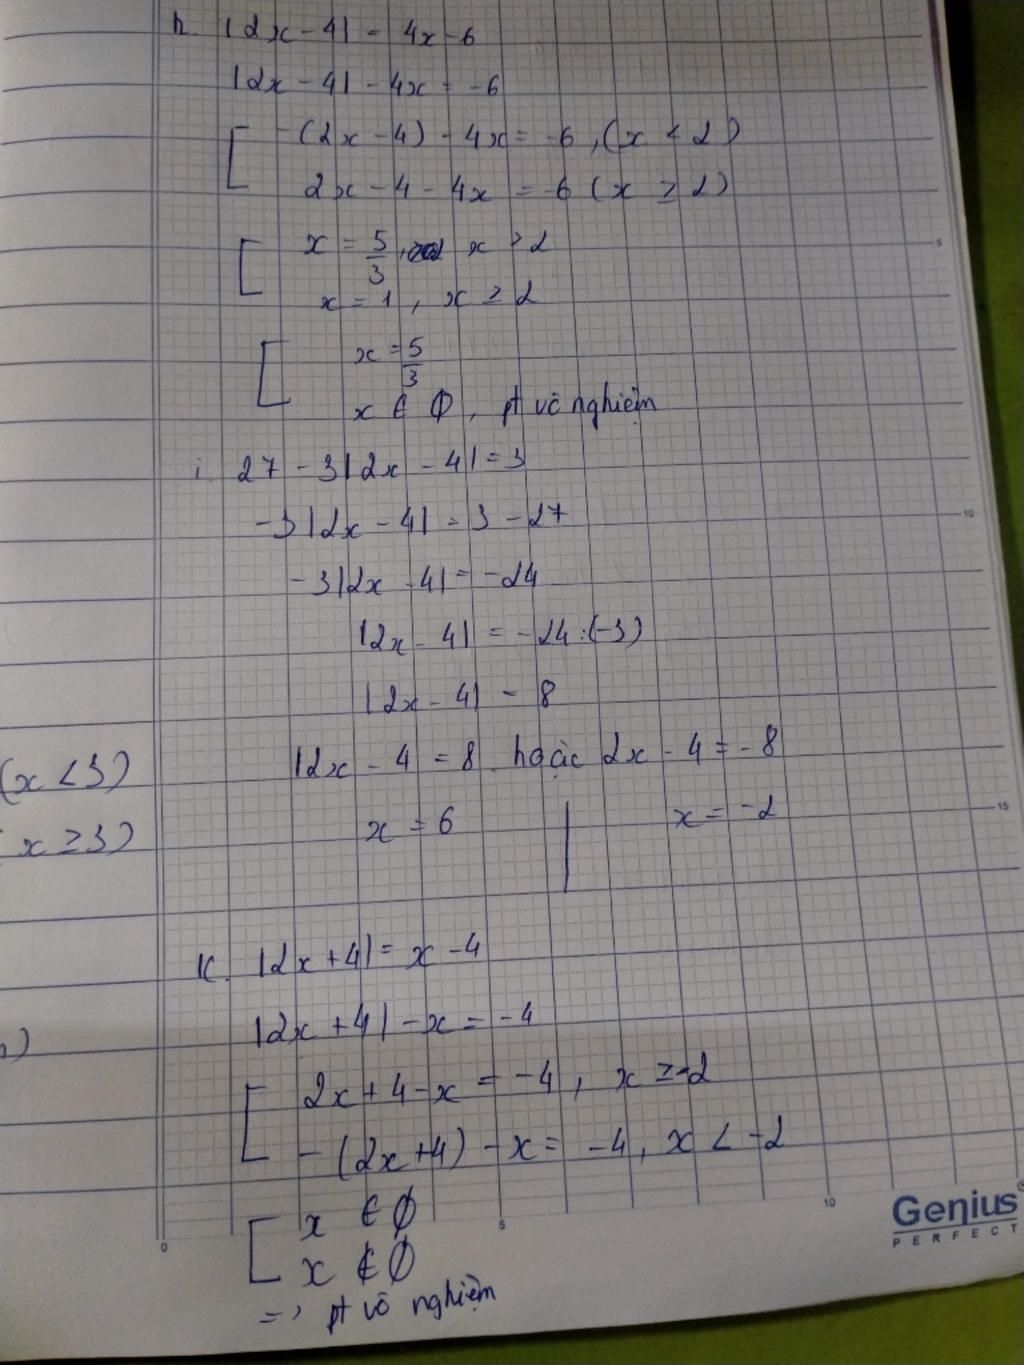 h. |2x - 4| = 4x - 6
|2x - 4| - 4x = -6
[ -(2x - 4) - 4x = -6, (x < 2)
2x - 4 - 4x = -6 (x ≥ 2)
[ x = 5/3, x > 2
x = 1, x ≥ 2
[ x = 5/3
x ∈ ∅, pt vô nghiệm
i. 27 - 3|2x - 4| = 3
-3|2x - 4| = 3 - 27
-3|2x - 4| = -24
|2x - 4| = -24 : (-3)
|2x - 4| = 8
|2x - 4 = 8 hoặc 2x - 4 = -8
(x < 3)
x = 6 | x = -2
x ≥ 3)
K. |2x + 4| = x - 4
|2x + 4| - x = -4
[ 2x + 4 - x = -4, x ≥ -2
-(2x + 4) - x = -4, x < -2
[ x ∈ ∅
x ∉ ∅
=> pt vô nghiệm
Genius
PERFECT
0 5 10
5
10
15